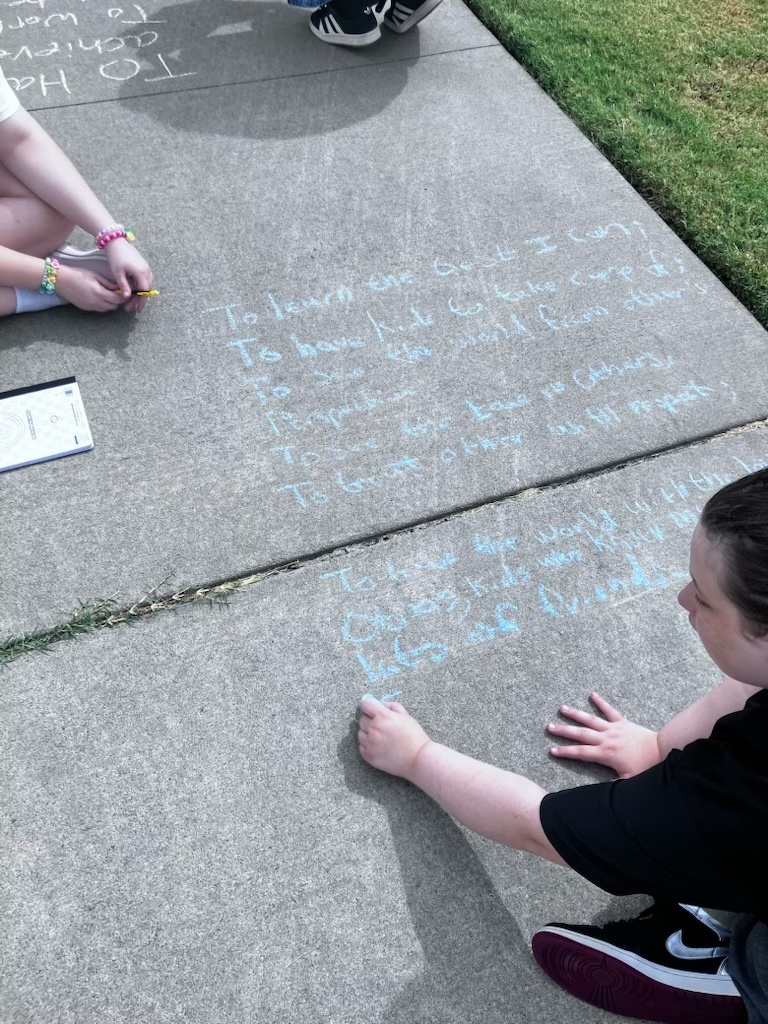 To Ha
achieve
To wor
be
To learn the best I can;
To have kids to take care of;
To see the world from other's
Perspective
To see the best in others;
To treat others with respect;
To leave the world with the
kids was
lots of friends